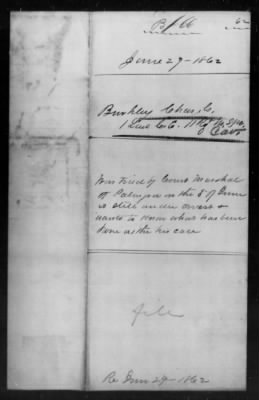 B/66 62
June 27-1862
Buckley Chas, C.
1 Lieut Co C. 11 Rg Mo. S.M.
Cavy
Was tried by Court Marshal
at Palmyra on the 5 of June
is still under arrest &
wants to know what has been
done in his case
file
Re June 27-1862